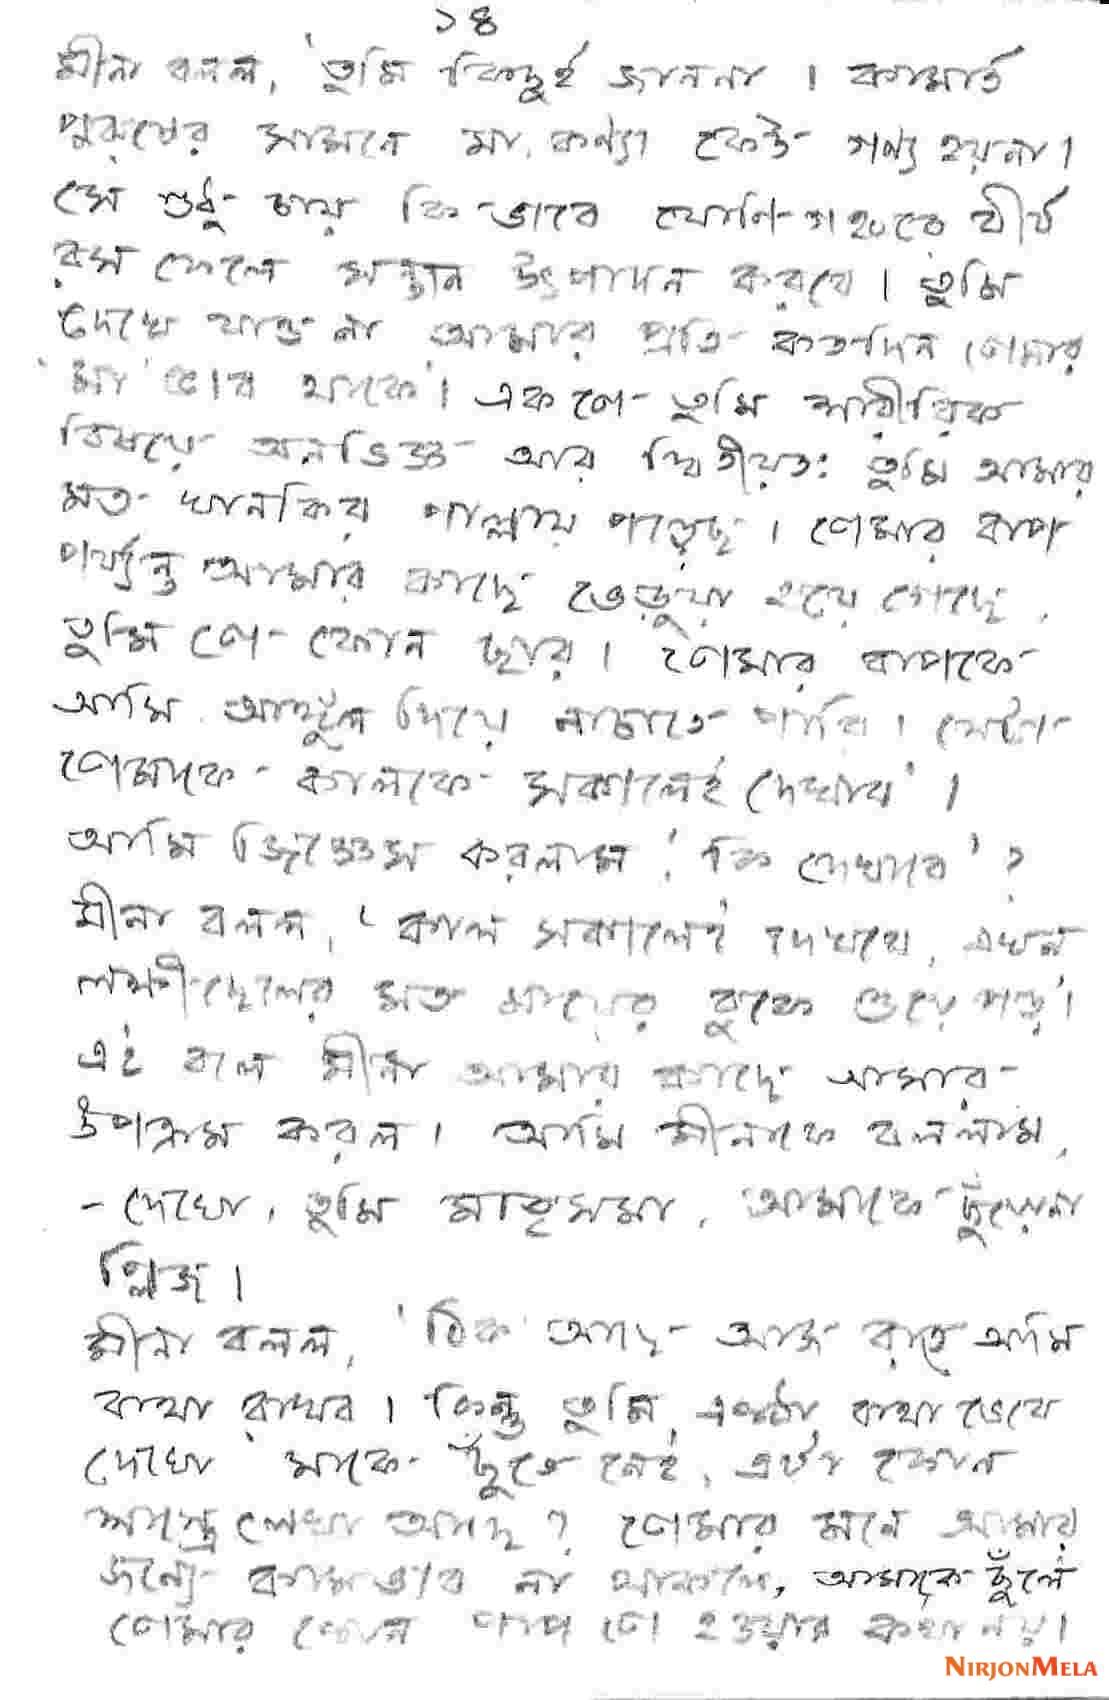 ১৪
মীনা বলল, 'তুমি কিছুই জাননা । কামার্ত
পুরুষের সামনে মা, কণ্যা কেউ গণ্য হয়না ।
সে শুধু চায় কি ভাবে যোনি গহ্বরে বীর্য
রস ফেলে সন্তান উৎপাদন করবে । তুমি
দেখে যাও না আমার প্রতি কতদিন তোমার
'মা ভাব থাকে' । একতো তুমি শারীরিক
বিষয়ে অনভিজ্ঞ আর দ্বিতীয়তঃ তুমি আমার
মত খানকির পাল্লায় পড়েছ । তোমার বাপ
পর্য্যন্ত আমার কাছে ভেড়ুয়া হয়ে গেছে,
তুমি তো কোন ছার । তোমার বাপকে
আমি আঙ্গুল দিয়ে নাচাতে পারি । সেটা
তোমাকে কালকে সকালেই দেখাব' ।
আমি জিজ্ঞেস করলাম, 'কি দেখাবে' ?
মীনা বলল, 'কাল সকালেই দেখবে, এখন
লক্ষ্মীছেলের মত মায়ের বুকে শুয়ে পড়' ।
এই বলে মীনা আমার কাছে আসার
উপক্রম করল । আমি মীনাকে বললাম,
- দেখো, তুমি মাতৃসমা, আমাকে ছুঁয়োনা
প্লিজ ।
মীনা বলল, 'ঠিক আছে আজ রাতে আমি
বাধা রাখব । কিন্তু তুমি কথা ভেবে
দেখো মাকে ছুঁতে নেই, এটা কোন
শাস্ত্রে লেখা আছে ? তোমার মনে আমার
জন্যে কামভাব না থাকলে, আমাকে ছুঁলে
তোমার কোন পাপ তো হওয়ার কথা নয় ।
NIRJONMELA